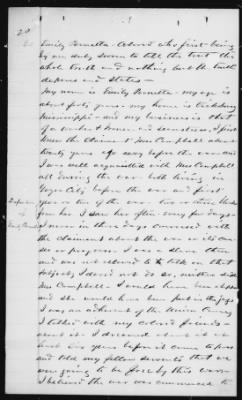 20
Emily Pernella Colored who first being
by me duly sworn to tell the truth the
whole truth and nothing but the truth
deposes and states—
My name is Emily Pernella - my age is
about forty years - my home is Vicksburg
Mississippi - and my business is that
of a washer & ironer and seamstress. I first
knew the claimant Mrs Campbell about
twenty years ago before the war and
I was well acquainted with Mrs Campbell
all during the war both living in
Yazoo City before the war and first
year or two of the war - two or three blocks
from her I saw her often every few days -
I never in those days conversed with
the claimant about the war or its Causes
or progress. I was a slave then
and was not allowed to talk on that
subject, I dared not do so, neither did
Mrs Campbell - I would have been
and she would have been put in the jail
I was an adherent of the Union Cause,
I talked with my colored friends -
about it I dreamed about it
years before it came to pass
and told my fellow servants that we
were going to be free by this war
I believed the war was commenced to
Deposition
of
Emily Pernella